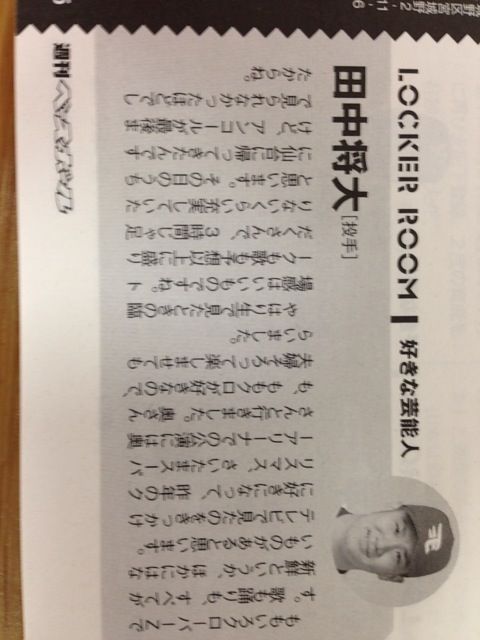 LOCKER ROOM
好きな芸能人
田中将大[投手]
ももいろクローバーZで
す。歌も踊りも、すべてが
新鮮というか、ほかにはな
いものがあると思います。
テレビで見たのをきっかけ
に好きになって、昨年のク
リスマス、さいたまスーパ
ーアリーナでの公演には奥
さんと行きました。奥さん
も、ももクロが好きなので、
夫婦そろって楽しませても
らいました。
やはり生で見たときの臨
場感はいいものですね。ト
ークも歌も予想以上に盛り
だくさんで、3時間じゃ足
りないくらい充実していた
と思います。その日のうち
に仙台に帰ってきたんです
けど、アンコールが最後ま
で見られなかったほどでし
たからね。
週刊ベースボール
野区宮城野2-11-6